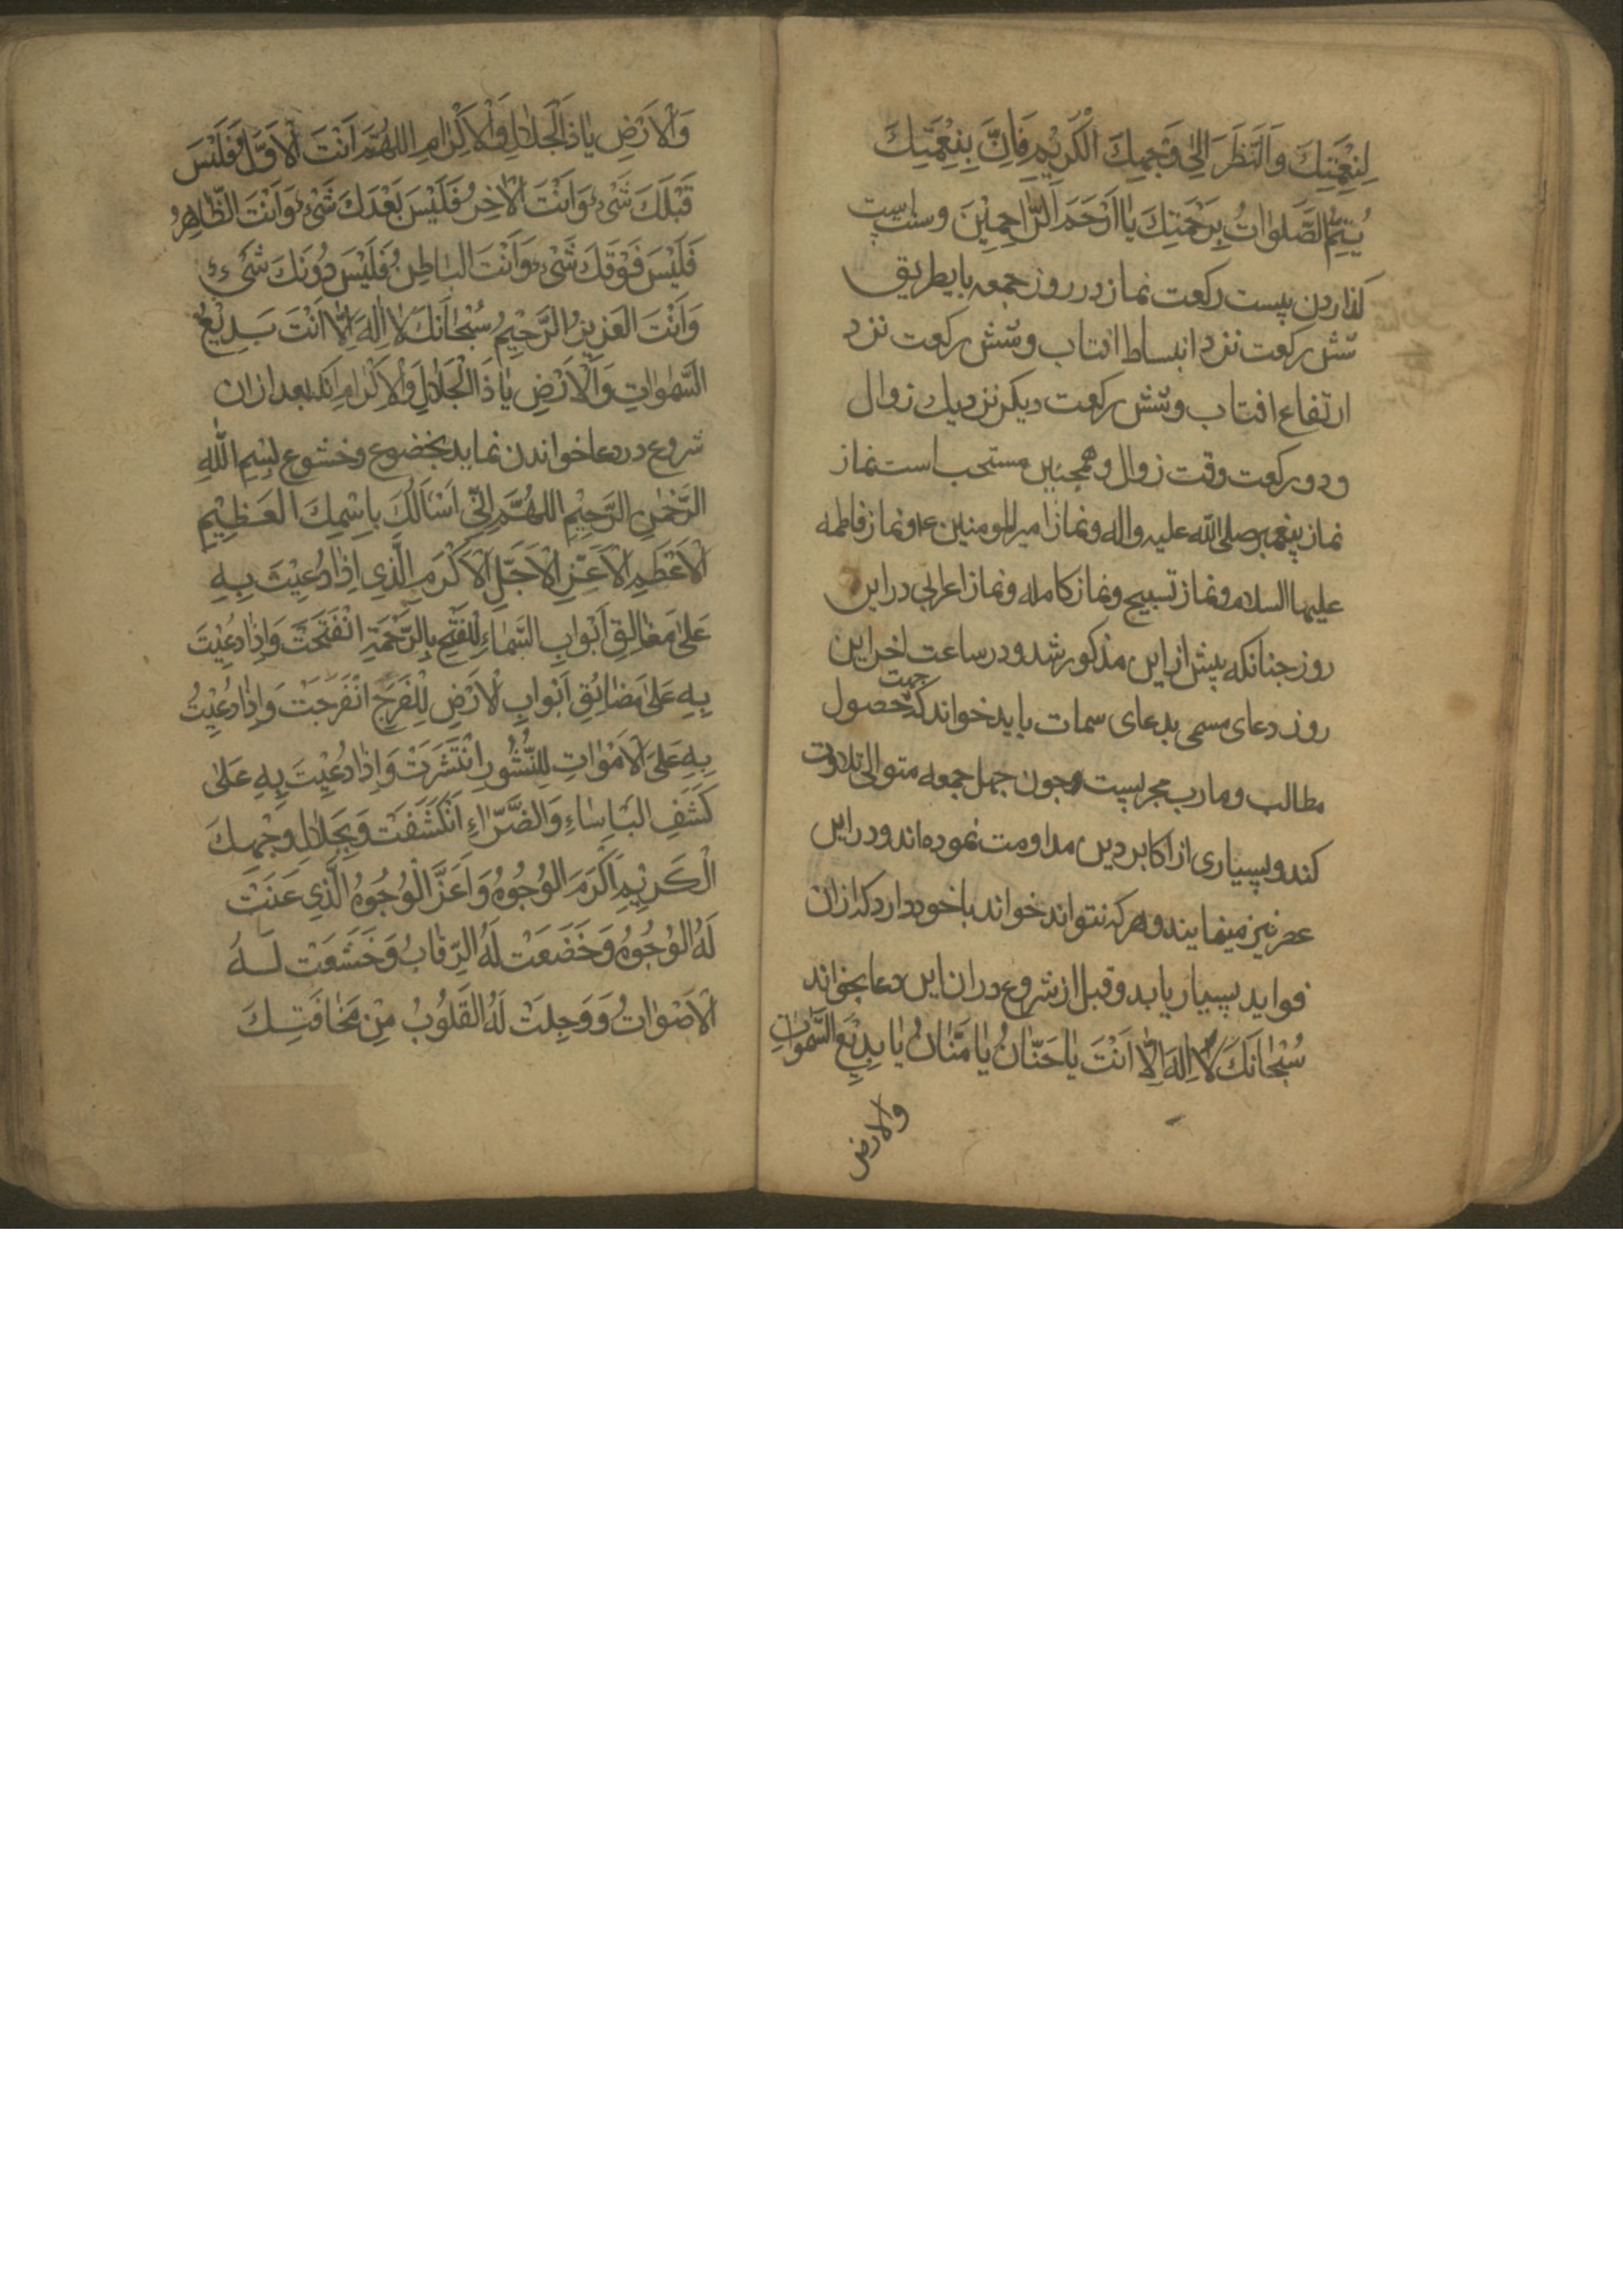 لِنِعْمَتِكَ وَالنَّظَرَ اِلىٰ وَجْهِكَ الْكَرِيْمِ فَاِنَّ بِنِعْمَتِكَ
يُتِمُّ الصَّلَوٰاتُ بِرَحْمَتِكَ يٰا اَرْحَمَ الرَّاحِمِيْنَ وسنت است
كذاردن بيست ركعت نماز در روز جمعه باين طريق
شش ركعت نزد انبساط افتاب وشش ركعت نزد
ارتفاع افتاب وشش ركعت ديكر نزديك زوال
ودو ركعت وقت زوال وهمچنين مستحب است نماز
نماز پيغمبر صلى الله عليه واله ونماز امير المومنين ع ونماز فاطمه
عليها السلام ونماز تسبيح ونماز كامله ونماز اعرابي در اين
روز جنانكه پيش از اين مذكور شد ودر ساعت اخر اين
روز دعاى مسمى بدعاى سمات بايد خواند كه جهت حصول
مطالب ومارب مجربست وجون جهل جمعه متوالى تلاوت
كند وبسيارى از اكابر دين مداومت نموده اند ودر اين
عصر نيز مينمايند وهر كه نتواند خواند باخود دارد كه از ان
فوايد بسيار يابد وقبل از شروع در ان اين دعا بخواند
سُبْحٰانَكَ لٰا اِلٰهَ اِلّٰا اَنْتَ يٰا حَنّٰانُ يٰا مَنّٰانُ يٰا بَدِيْعَ السَّمٰوٰاتِ
والارض
وَالْاَرْضِ يٰا ذَا الْجَلٰالِ وَالْاِكْرٰامِ اللهُمَّ اَنْتَ الْاَوَّلُ فَلَيْسَ
قَبْلَكَ شَىْءٌ وَاَنْتَ الْاٰخِرُ فَلَيْسَ بَعْدَكَ شَىْءٌ وَاَنْتَ الظّٰاهِرُ
فَلَيْسَ فَوْقَكَ شَىْءٌ وَاَنْتَ الْبٰاطِنُ فَلَيْسَ دُوْنَكَ شَىْءٌ
وَاَنْتَ الْعَزِيزُ الرَّحِيْمُ سُبْحٰانَكَ لٰا اِلٰهَ اِلّٰا اَنْتَ بَدِيْعُ
السَّمٰوٰاتِ وَالْاَرْضِ يٰا ذَا الْجَلٰالِ وَالْاِكْرٰامِ انكه بعد ازان
شروع در دعا خواندن نمايد بخضوع وخشوع بِسْمِ اللهِ
الرَّحْمٰنِ الرَّحِيْمِ اللهُمَّ اِنِّى اَسْاَلُكَ بِاسْمِكَ الْعَظِيْمِ
الْاَعْظَمِ الْاَعَزِّ الْاَجَلِّ الْاَكْرَمِ الَّذِي اِذٰا دُعِيْتَ بِهِ
عَلىٰ مَغٰالِقِ اَبْوٰابِ السَّمٰاءِ لِلْفَتْحِ بِالرَّحْمَةِ انْفَتَحَتْ وَاِذٰا دُعِيْتَ
بِهِ عَلىٰ مَضٰائِقِ اَبْوٰابِ الْاَرْضِ لِلْفَرَجِ انْفَرَجَتْ وَاِذٰا دُعِيْتُ
بِهِ عَلَى الْاَمْوٰاتِ لِلنُّشُورِ انْتَشَرَتْ وَاِذٰا دُعِيْتَ بِهِ عَلىٰ
كَشْفِ الْبَاْسٰاءِ وَالضَّرّٰاءِ انْكَشَفَتْ وَبِجَلٰالِ وَجْهِكَ
الْكَرِيْمِ اَكْرَمِ الْوُجُوْهِ وَاَعَزِّ الْوُجُوْهِ الَّذِي عَنَتْ
لَهُ الْوُجُوْهُ وَخَضَعَتْ لَهُ الرِّقٰابُ وَخَشَعَتْ لَهُ
الْاَصْوٰاتُ وَوَجِلَتْ لَهُ الْقُلُوْبُ مِنْ مَخٰافَتِكَ